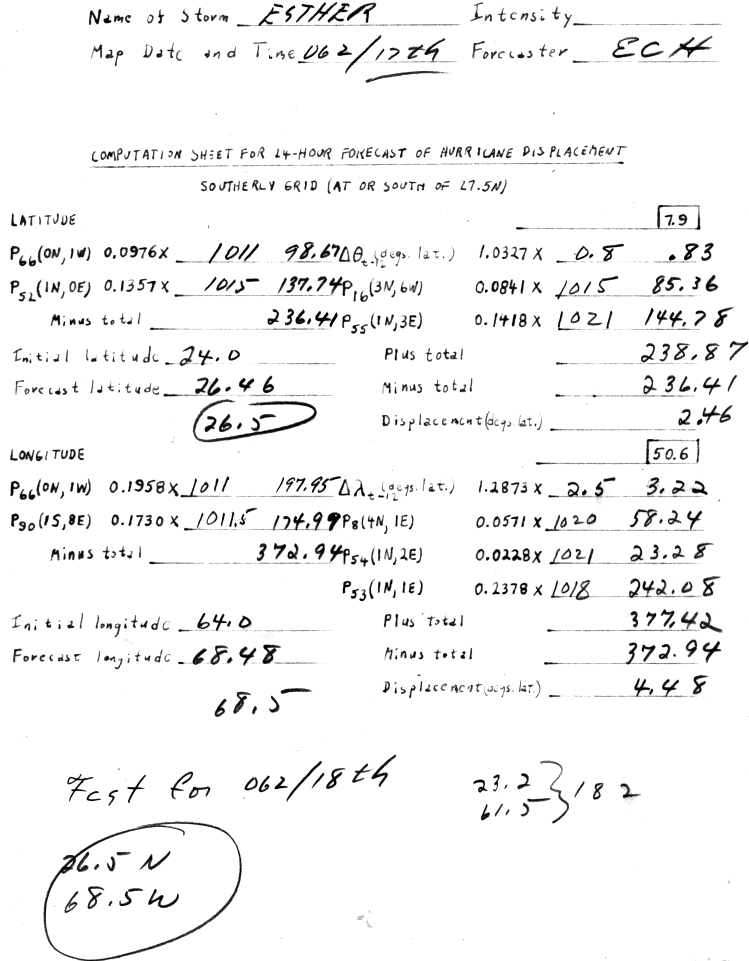 Name of Storm ESTHER Intensity
Map Date and Time 06Z/17th Forecaster ECH
COMPUTATION SHEET FOR 24-HOUR FORECAST OF HURRICANE DISPLACEMENT
SOUTHERLY GRID (AT OR SOUTH OF 27.5N)
LATITUDE 7.9
P66(0N, 1W) 0.0976X 1011 98.67 Δθt-12 (degs. lat.) 1.0327 X 0.8 .83
P52(1N, 0E) 0.1357X 1015 137.74 P16(3N, 6W) 0.0841 X 1015 85.36
Minus total 236.41 P55(1N, 3E) 0.1418 X 1021 144.78
Initial latitude 24.0 Plus total 238.87
Forecast latitude 26.46 Minus total 236.41
26.5 Displacement (degs. lat.) 2.46
LONGITUDE 50.6
P66(0N, 1W) 0.1958X 1011 197.95 Δλt-12 (degs. lat.) 1.2873 X 2.5 3.22
P90(1S, 8E) 0.1730 X 1011.5 174.99 P8(4N, 1E) 0.0571 X 1020 58.24
Minus total 372.94 P54(1N, 2E) 0.0228X 1021 23.28
P53(1N, 1E) 0.2378 X 1018 242.08
Initial longitude 64.0 Plus total 377.42
Forecast longitude 68.48 Minus total 372.94
68.5 Displacement (degs. lat.) 4.48
Fcst for 06Z/18th 23.2 } 18 Z
61.5
26.5 N
68.5 W